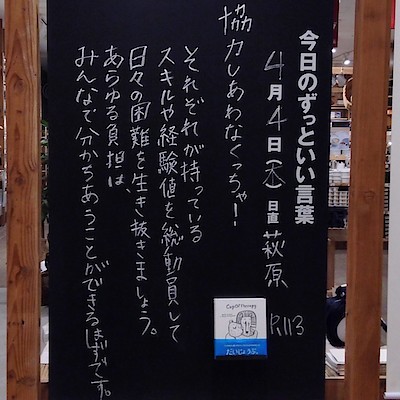 今日のずっといい言葉
4月4日(木) 日直 萩原
P.113
協力しあわなくっちゃ!
それぞれが持っている
スキルや経験値を総動員して
日々の困難を生き抜きましょう。
あらゆる負担は、
みんなで分かちあうことができるはずです。
Cup Of Therapy
だいじょうぶ。